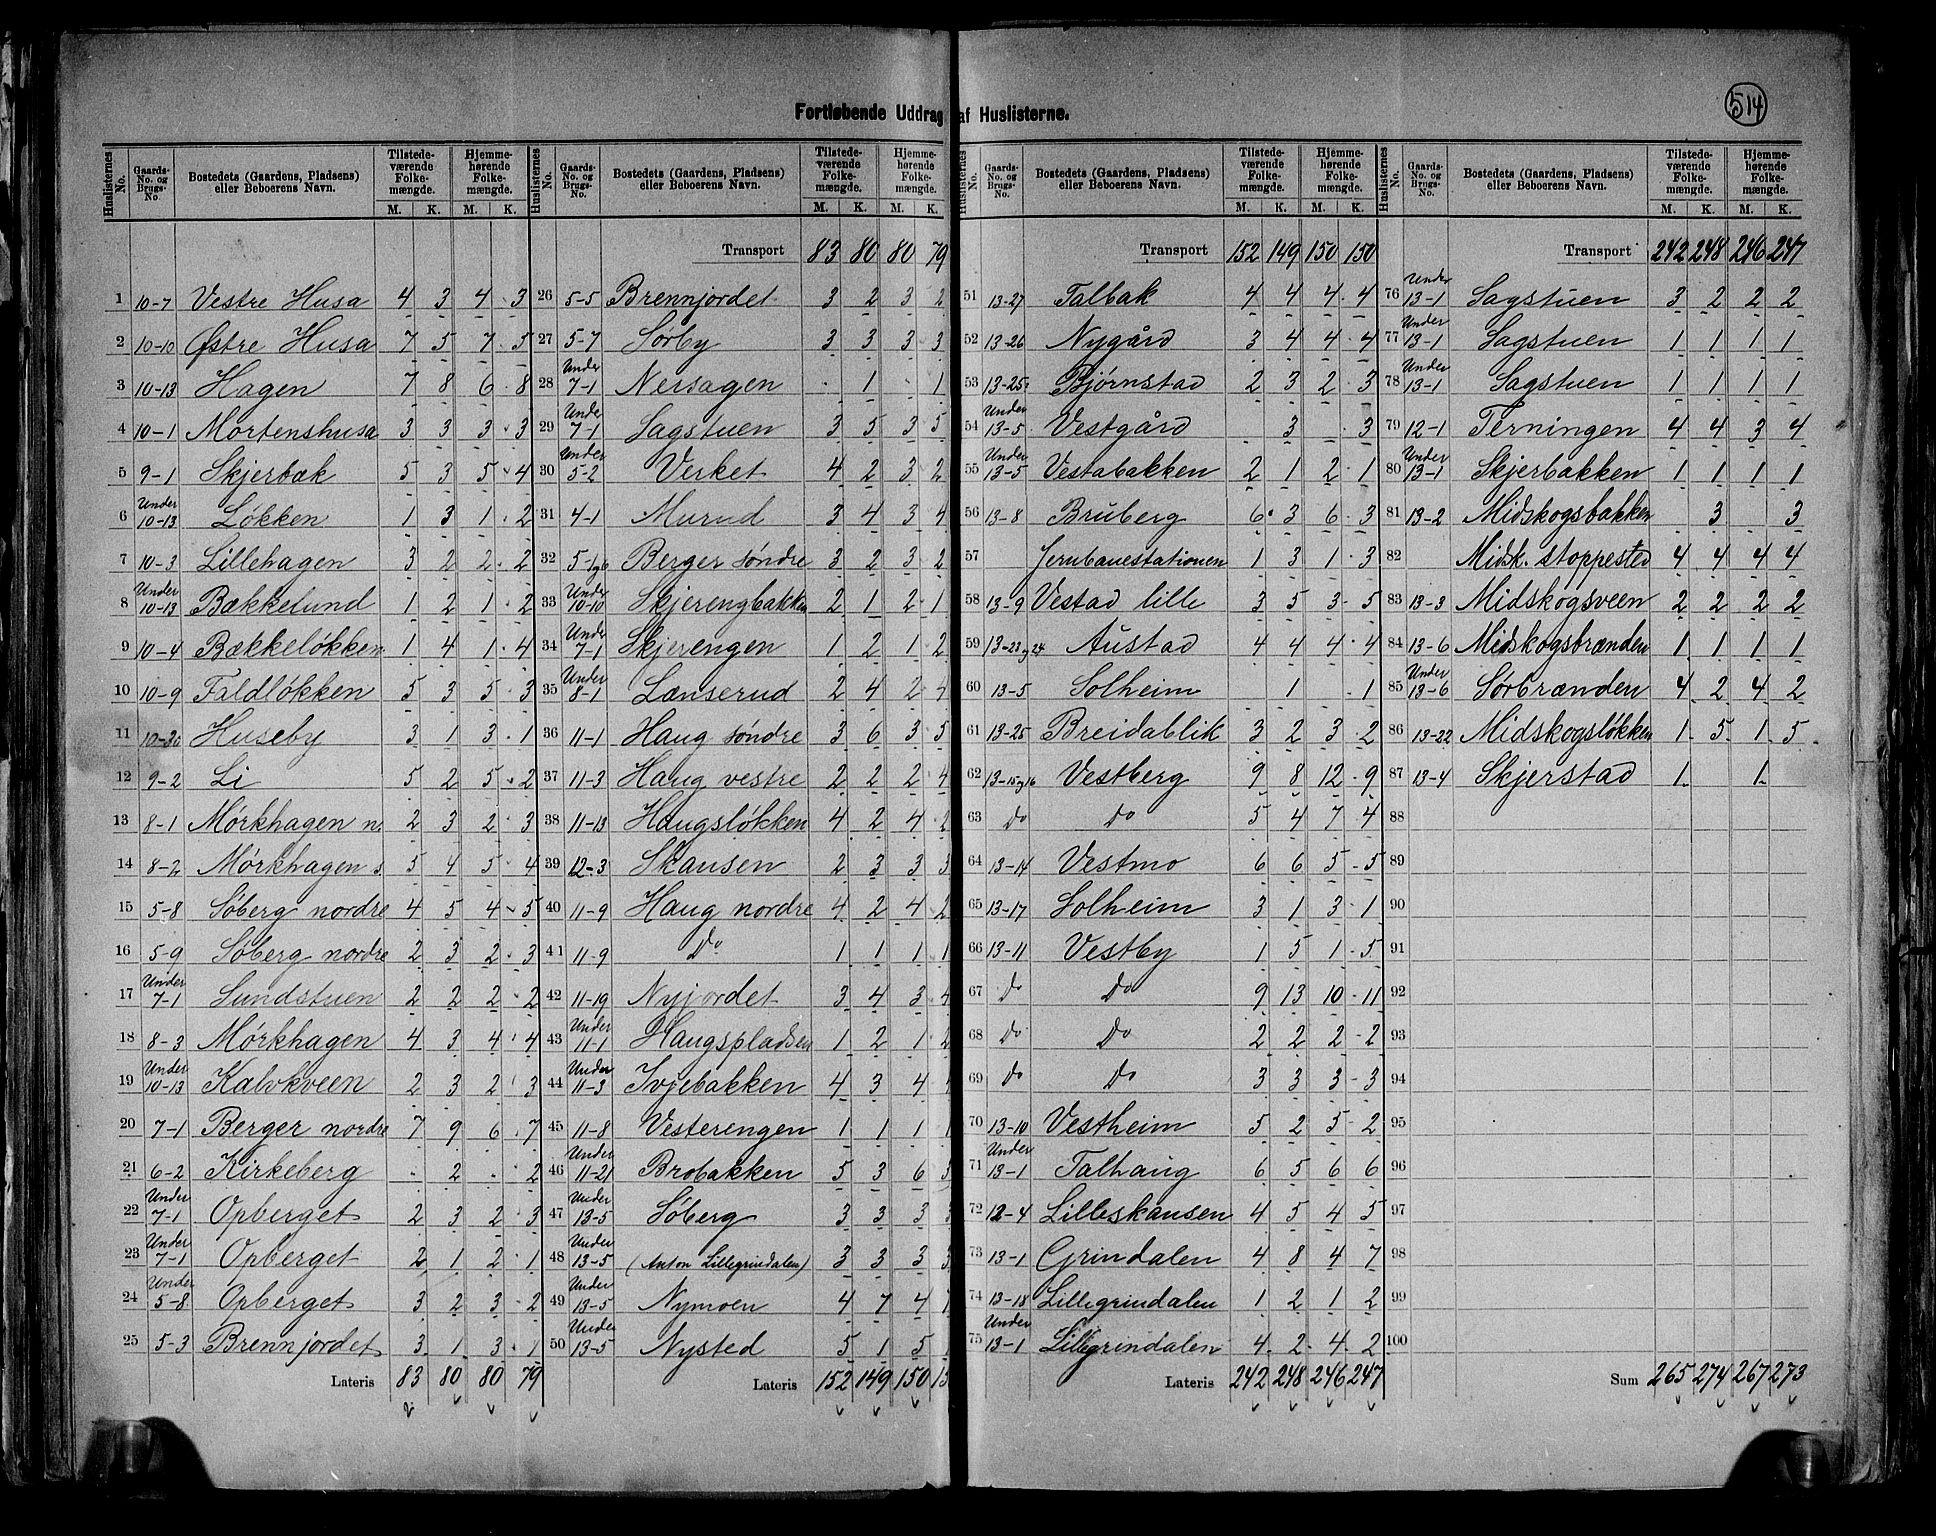 514
Fortløbende Uddrag af Huslisterne.
Huslisternes No. Gaards-No. og Brugs-No. Bostedets (Gaardens, Pladsens) eller Beboerens Navn. Tilstedeværende Folkemængde. M. K. Hjemmehørende Folkemængde. M. K.
1 10-7 Vestre Husa 4 3 4 3
2 10-10 Østre Husa 7 5 7 5
3 10-13 Hagen 7 8 6 8
4 10-1 Mortenshusa 3 3 3 3
5 9-1 Skjerbæk 5 3 5 4
6 Under 10-13 Løkken 1 3 1 2
7 10-3 Lillehagen 3 2 2 2
8 Under 10-13 Bækkelund 1 2 1 2
9 10-4 Bækkeløkken 1 4 1 4
10 10-9 Faldløkken 5 3 5 3
11 Huseby 3 1 3 1
12 9-2 Li 5 2 5 2
13 8-1 Mørkhagen n. 2 3 2 3
14 8-2 Mørkhagen s. 5 4 5 4
15 5-8 Søberg nordre 4 5 4 5
16 5-9 Søberg nordre 2 3 2 3
17 Under 7-1 Sundstuen 2 2 2 2
18 8-3 Mørkhagen 4 3 4 4
19 Under 10-13 Kalvkveen 2 3 2 3
20 7-1 Berger nordre 7 9 6 7
21 6-2 Kirkeberg . 2 . 2
22 Under 7-1 Opberget 2 3 2 3
23 Under 7-1 Opberget 2 1 2 1
24 Under 5-8 Opberget 3 2 3 2
25 5-3 Brennjordet 3 1 3 1
Lateris 83 80 80 79
Huslisternes No. Gaards-No. og Brugs-No. Bostedets (Gaardens, Pladsens) eller Beboerens Navn. Tilstedeværende Folkemængde. M. K. Hjemmehørende Folkemængde. M. K.
Transport 83 80 80 79
26 5-5 Brennjordet 3 2 3 2
27 5-7 Sørby 3 3 3 3
28 Under 7-1 Nersagen . 1 . 1
29 Under 7-1 Sagstuen 3 5 3 5
30 Under 5-2 Verket 4 2 3 2
31 4-1 Murud 3 4 3 4
32 Berger søndre 3 2 3 2
33 Under 10-10 Skjerengbakken 2 1 2 1
34 Under 7-1 Skjerengen 1 2 1 2
35 Under 8-1 Lænserud 2 4 2 4
36 11-1 Haug søndre 3 6 3 5
37 11-3 Haug vestre 2 2 2 4
38 11-13 Haugsløkken 4 2 4 2
39 12-3 Skansen 2 3 3 3
40 11-9 Haug nordre 4 2 4 2
41 11-9 Do 1 1 1 1
42 11-19 Nyjordet 3 4 3 4
43 Under 11-1 Haugspladsen 1 2 1 2
44 Under 11-3 Ivjebakken 4 3 4
45 11-8 Vesterengen 1 1 1 1
46 Under 11-21 Brobakken 5 3 6 3
47 Under 13-5 Søberg 3 3 3 3
48 Under 13-5 (Anton Lillegrindalen) 3 3 3 3
49 Under 13-5 Nymoen 4 7 4
50 Under 13-5 Nysted 5 1 5 1
Lateris 152 149 150 15
Huslisternes No. Gaards-No. og Brugs-No. Bostedets (Gaardens, Pladsens) eller Beboerens Navn. Tilstedeværende Folkemængde. M. K. Hjemmehørende Folkemængde. M. K.
Transport 152 149 150 150
51 13-27 Talbak 4 4 4 4
52 13-26 Nygård 3 4 4 4
53 13-25 Bjørnstad 2 3 2 3
54 Under 13-5 Vestgård 3 3
55 Under 13-5 Vestabakken 2 1 2 1
56 13-8 Bruberg 6 3 6 3
57 Jernbanestationen 1 3 1 3
58 13-9 Vestad lille 3 5 3 5
59 13-23 og 24 Austad 4 4 4 4
60 13-5 Solheim 1 1
61 13-25 Breidablik 3 2 3 2
62 13-15 og 16 Vestberg 9 8 12 9
63 Do Do 5 4 7 4
64 13-14 Vestmo 6 6 5 5
65 13-17 Solheim 3 1 3 1
66 13-11 Vestby 1 5 1 5
67 Do Do 9 13 10 11
68 Do Do 2 2 2 2
69 Do Do 3 3 3 3
70 13-10 Vestheim 5 2 5 2
71 Under 13-1 Talhaug 6 5 6 6
72 12-4 Lilleskansen 4 5 4 5
73 13-1 Grindalen 4 8 4 7
74 13-18 Lillegrindalen 1 2 1 2
75 Under 13-1 Lillegrindalen 4 2 4 2
Lateris 242 248 246 247
Huslisternes No. Gaards-No. og Brugs-No. Bostedets (Gaardens, Pladsens) eller Beboerens Navn. Tilstedeværende Folkemængde. M. K. Hjemmehørende Folkemængde. M. K.
Transport 242 248 246 247
76 Under 13-1 Sagstuen 3 2 2 2
77 Under 13-1 Sagstuen 1 1 1 1
78 Under 13-1 Sagstuen 1 1 1 1
79 12-1 Terningen 4 4 3 4
80 Under 13-1 Skjerbakken 1 1 1 1
81 13-2 Midskogsbakken 3 3
82 Midsk. stoppested 4 4 4 4
83 13-3 Midskogsveen 2 2 2 2
84 13-6 Midskogsbrænden 1 1 1 1
85 Under 13-6 Sørbrænden 4 2 4 2
86 13-22 Midskogsløkken 1 5 1 5
87 13-4 Skjerstad 1 1
88
89
90
91
92
93
94
95
96
97
98
99
100
Sum 265 274 267 273